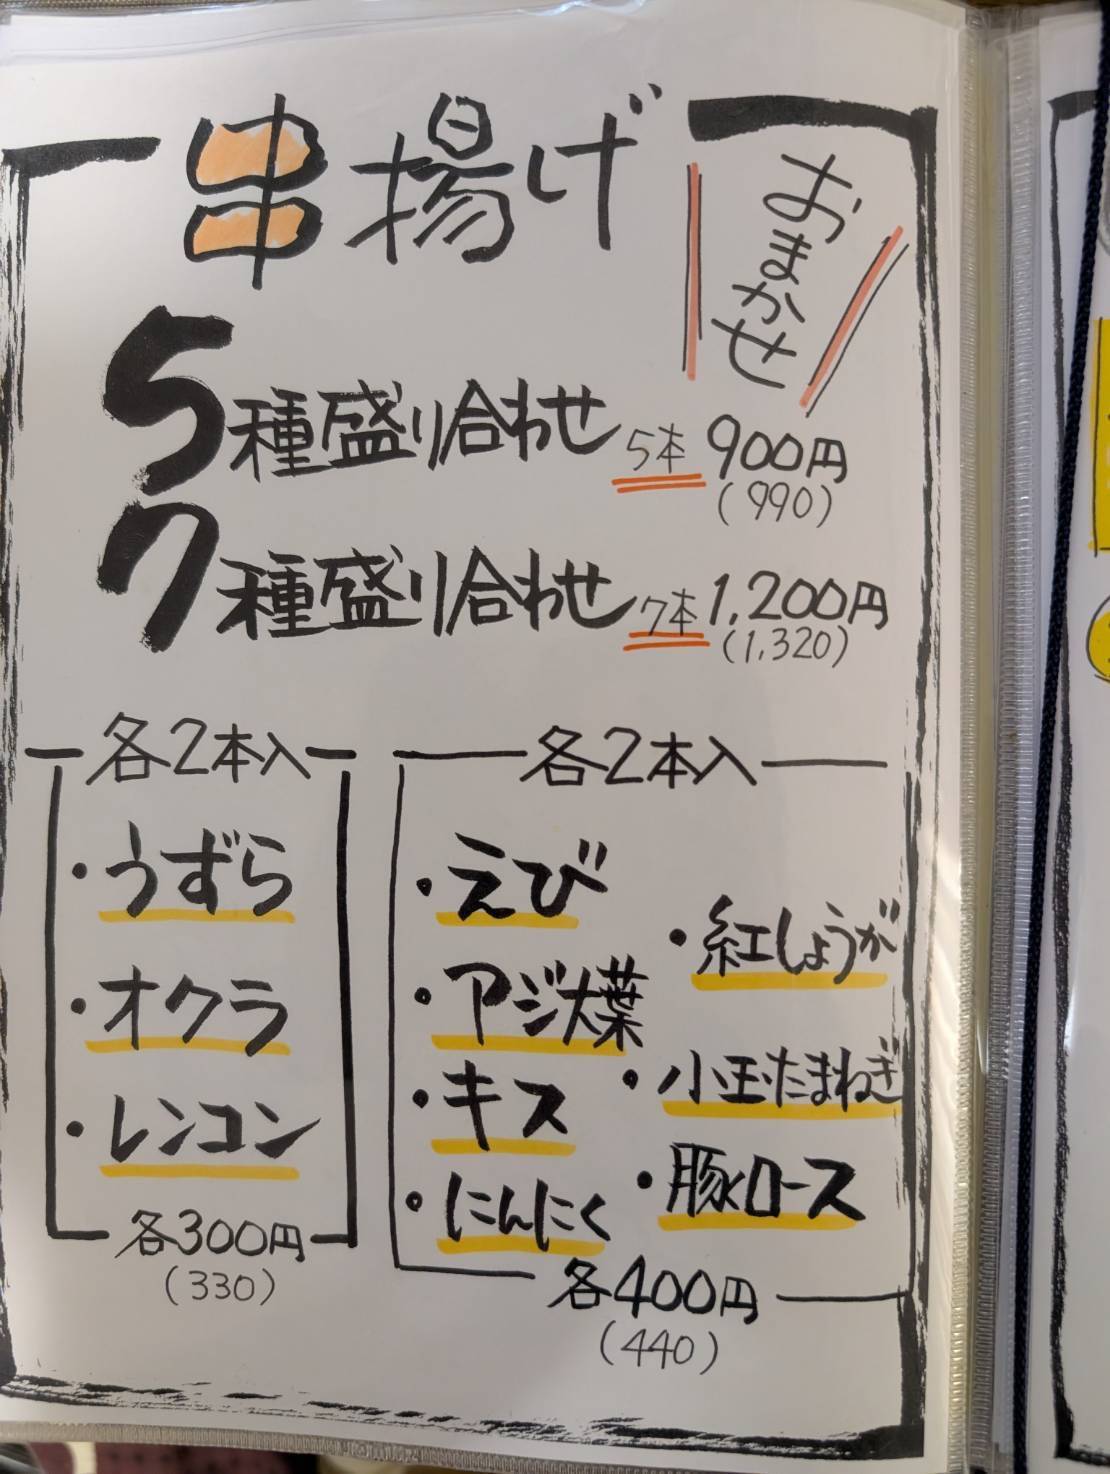 串揚げ
おまかせ
5種盛り合わせ 5本 900円
(990)
7種盛り合わせ 7本 1,200円
(1,320)
各2本入
・うずら
・オクラ
・レンコン
各300円
(330)
各2本入
・えび
・アジ大葉
・キス
・にんにく
・紅しょうが
・小玉たまねぎ
・豚ロース
各400円
(440)